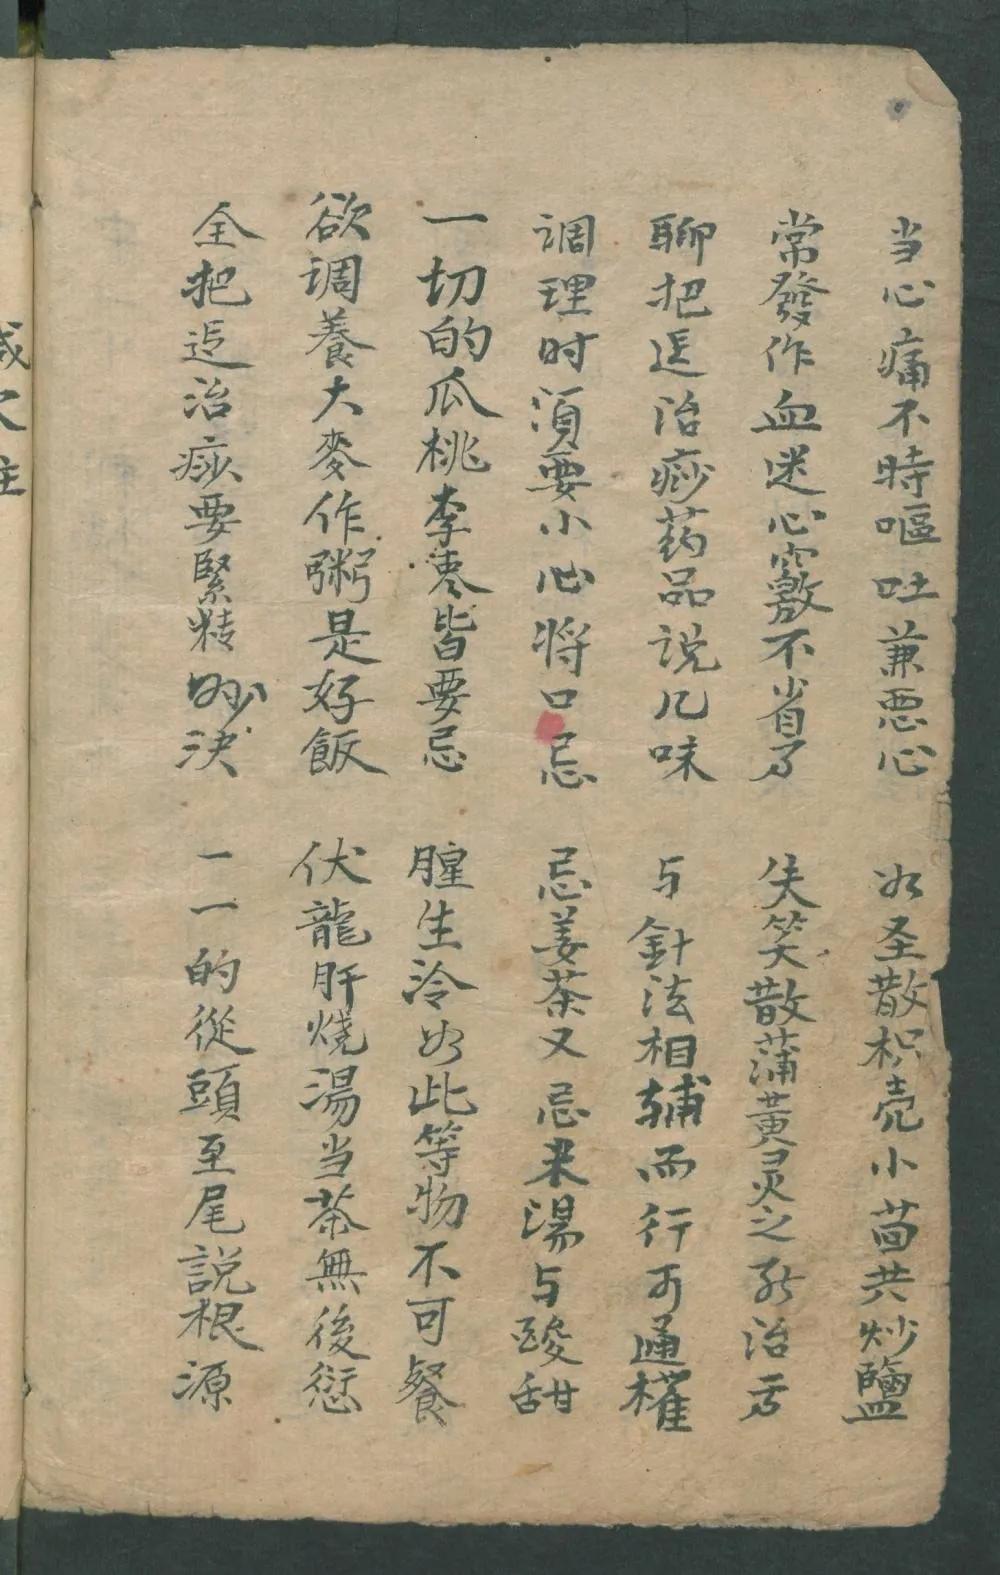 当心痛不時嘔吐兼悪心 以圣散枳壳小茴共炒鹽
常發作血迷心竅不省 失笑散蒲黄灵之 治
聊把 治痧药品说几味 与針法相辅而行可通權
調理时須要小心将口忌 忌姜茶又忌米湯与酸甜
一切的瓜桃李枣皆要忌 腥生冷如此等物不可餐
欲调養大麥作粥是好飯 伏龍肝燒湯当茶無後愆
全把 治痧要緊精妙决 一一的從頭至尾説根源